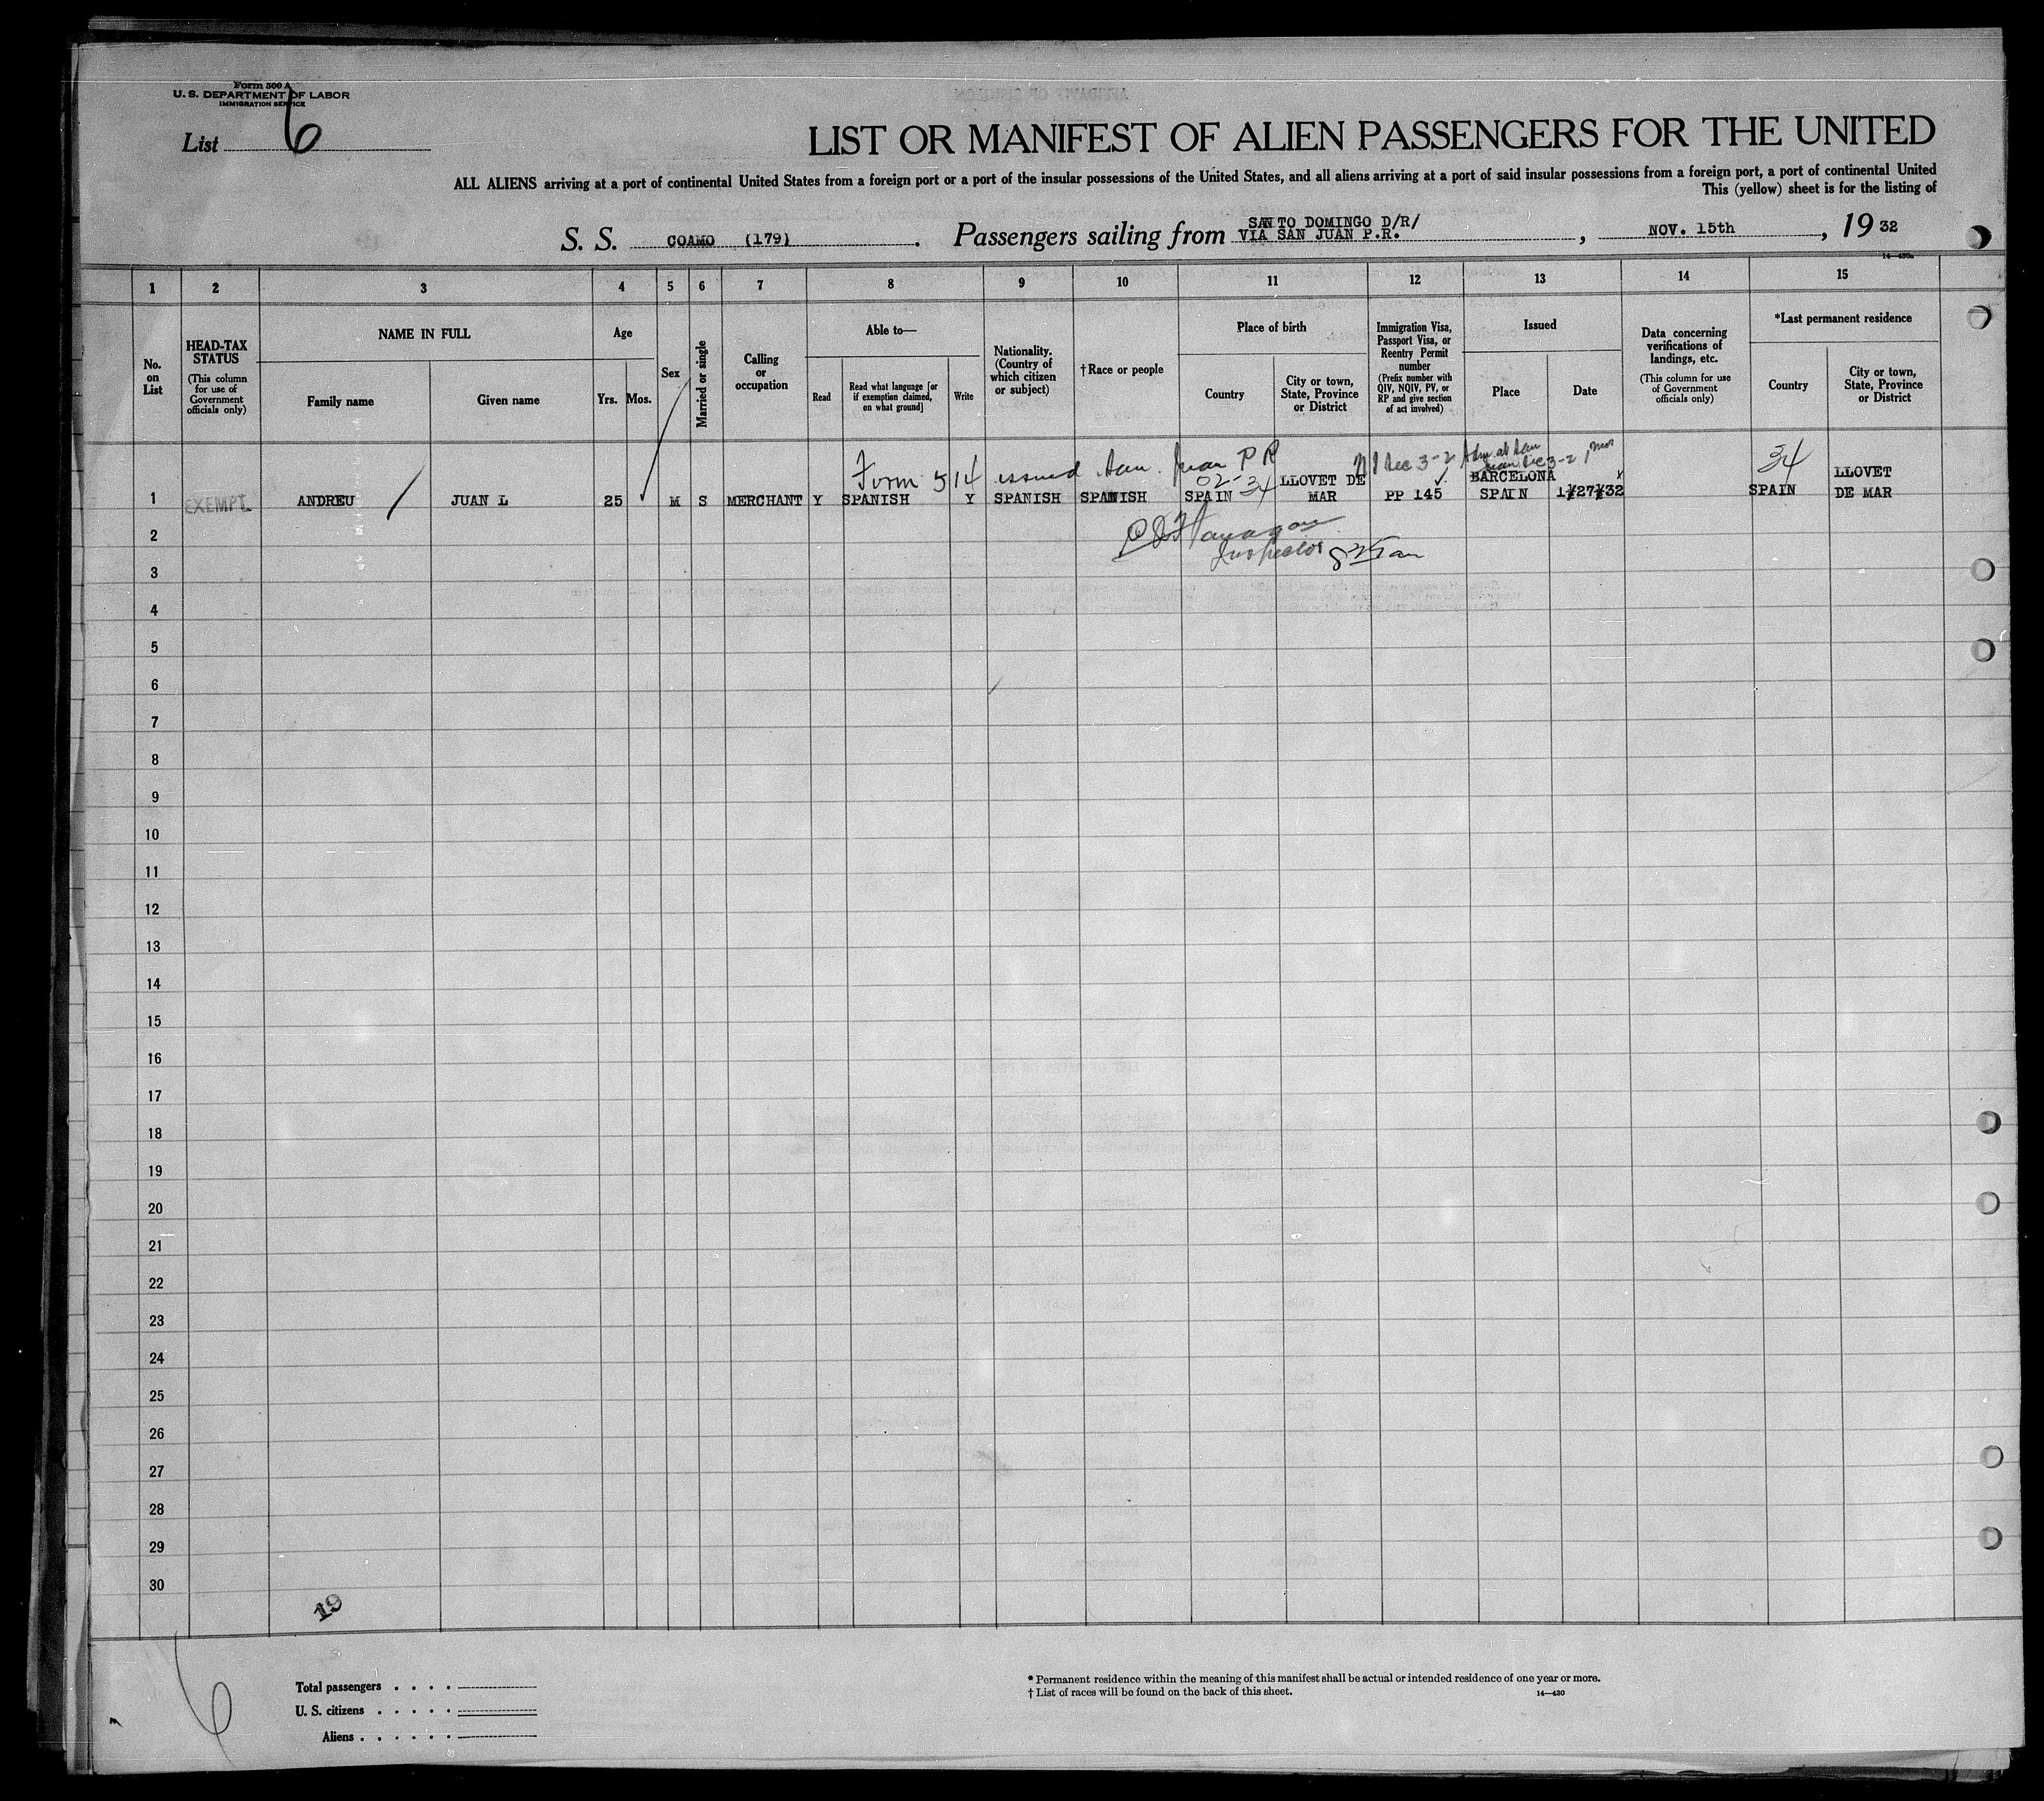 Form 500 A
U. S. DEPARTMENT OF LABOR
IMMIGRATION SERVICE
List 6
LIST OR MANIFEST OF ALIEN PASSENGERS FOR THE UNITED
ALL ALIENS arriving at a port of continental United States from a foreign port or a port of the insular possessions of the United States, and all aliens arriving at a port of said insular possessions from a foreign port, a port of continental United
This (yellow) sheet is for the listing of
S. S. COAMO (179). Passengers sailing from SANTO DOMINGO D/R/ VIA SAN JUAN P.R., NOV. 15th, 19 32
14—430a
1 2 3 4 5 6 7 8 9 10 11 12 13 14 15
No. on List
HEAD-TAX STATUS
(This column for use of Government officials only)
NAME IN FULL
Family name
Given name
Age
Yrs. Mos.
Sex
Married or single
Calling or occupation
Able to—
Read
Read what language [or if exemption claimed, on what ground]
Write
Nationality. (Country of which citizen or subject)
†Race or people
Place of birth
Country
City or town, State, Province or District
Immigration Visa, Passport Visa, or Reentry Permit number
(Prefix number with QIV, NQIV, PV, or RP and give section of act involved)
Issued
Place
Date
Data concerning verifications of landings, etc.
(This column for use of Government officials only)
*Last permanent residence
Country
City or town, State, Province or District
Form 514 issued San Juan P R
02-34
Sec 3-2
Adm at San Juan Sec 3-2 1 mos
34
1 EXEMPT ANDREU JUAN L 25 M S MERCHANT Y SPANISH Y SPANISH SPANISH SPAIN LLOVET DE MAR PP 145 BARCELONA SPAIN 1/27/32 SPAIN LLOVET DE MAR
Inspector
2
3
4
5
6
7
8
9
10
11
12
13
14
15
16
17
18
19
20
21
22
23
24
25
26
27
28
29
30
19
6
Total passengers
U. S. citizens
Aliens
* Permanent residence within the meaning of this manifest shall be actual or intended residence of one year or more.
† List of races will be found on the back of this sheet.
14—430